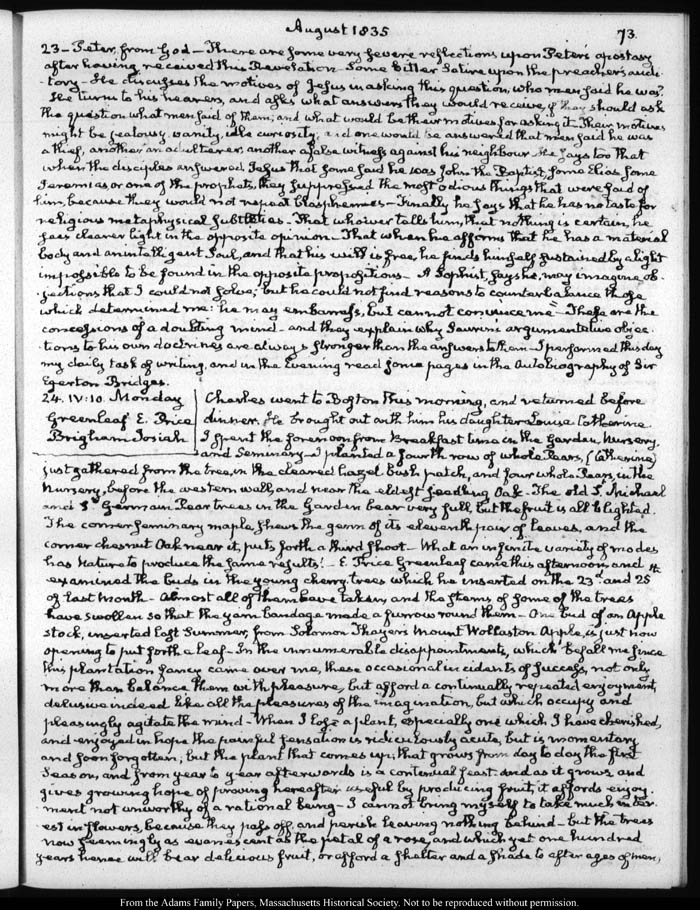 August 1835
73.
23 — Peter, from God — There are some very severe reflections upon Peter's apostasy
after having received this Revelation. Some bitter Satire upon the preacher's audi-
tory — He discusses the motives of Jesus in asking this question, who men said he was?
He turns to his hearers, and asks what answers they would receive, if they should ask
the question what men said of them; and what would be their motives for asking it. Their motives
might be jealousy, vanity, idle curiosity; and one would be answered that men said he was
a thief, another an adulterer, another a false witness against his neighbour. He says too that
when the disciples answered Jesus that some said he was John the Baptist, some Elias, some
Jeremias or one of the prophets, they suppressed the most odious things that were said of
him, because they would not repeat blasphemies — Finally he says that he has no taste for
religious metaphysical subtleties — That whoever tells him, that nothing is certain, he
sees clearer light in the opposite opinion — That when he affirms that he has a material
body and an intelligent Soul, and that his will is free, he finds himself sustained by a light
impossible to be found in the opposite propositions — A Sophist, says he, may imagine ob-
jections that I could not solve; but he could not find reasons to counterbalance those
which determined me: he may embarrass, but cannot convince me — These are the
concessions of a doubting mind — and they explain why Saurin's argumentative objec-
tions to his own doctrines are always stronger than the answers to them — I performed this day
my daily task of writing, and in the Evening read some pages in the Autobiography of Sir
Egerton Bridges.
24. IV:10. Monday
Greenleaf E. Price
Brigham Josiah
Charles went to Boston this morning, and returned before
dinner. He brought out with him his daughter Louisa Catherine.
I spent the forenoon from Breakfast time in the Garden, Nursery,
and Seminary — I planted a fourth row of whole Pears, (Catherine)
just gathered from the tree, in the cleared hazel bush patch, and four whole Pears, in the
Nursery, before the western wall, and near the eldest seedling Oak — The old S. Michael
and St Germain Pear trees in the Garden bear very full, but the fruit is all blighted.
The corner seminary maple, shews the germ of its eleventh pair of leaves, and the
corner chesnut Oak near it, puts forth a third shoot — What an infinite variety of modes
has Nature to produce the same results! — E. Price Greenleaf came this afternoon, and
examined the buds in the young cherry trees which he inserted on the 23d and 25th
of last month — Almost all of them have taken, and the stems of some of the trees
have swollen so that the yarn bandage made a furrow round them — One bud of an Apple
stock, inserted last Summer, from Solomon Thayer's Mount Wollaston Apple, is just now
opening to put forth a leaf — In the innumerable disappointments, which befall me since
this plantation fancy came over me, these occasional incidents of success, not only
more than balance them with pleasure, but afford a continually repeated enjoyment,
delusive indeed like all the pleasures of the imagination, but which occupy and
pleasingly agitate the mind — When I lose a plant, especially one which I have cherished,
and enjoyed in hope the painful sensation is ridiculously acute, but is momentary
and soon forgotten; but the plant that comes up; that grows from day to day the first
season, and from year to year afterwards is a continual feast. And as it grows, and
gives growing hope of proving hereafter useful by producing fruit, it affords enjoy-
ment not unworthy of a rational being — I cannot bring myself to take much inter-
est in flowers, because they pass off and perish leaving nothing behind — but the trees
now seemingly as evanescent as the petal of a rose, and which yet one hundred
years hence will bear delicious fruit, or afford a shelter and a shade to after ages of men,
From the Adams Family Papers, Massachusetts Historical Society. Not to be reproduced without permission.